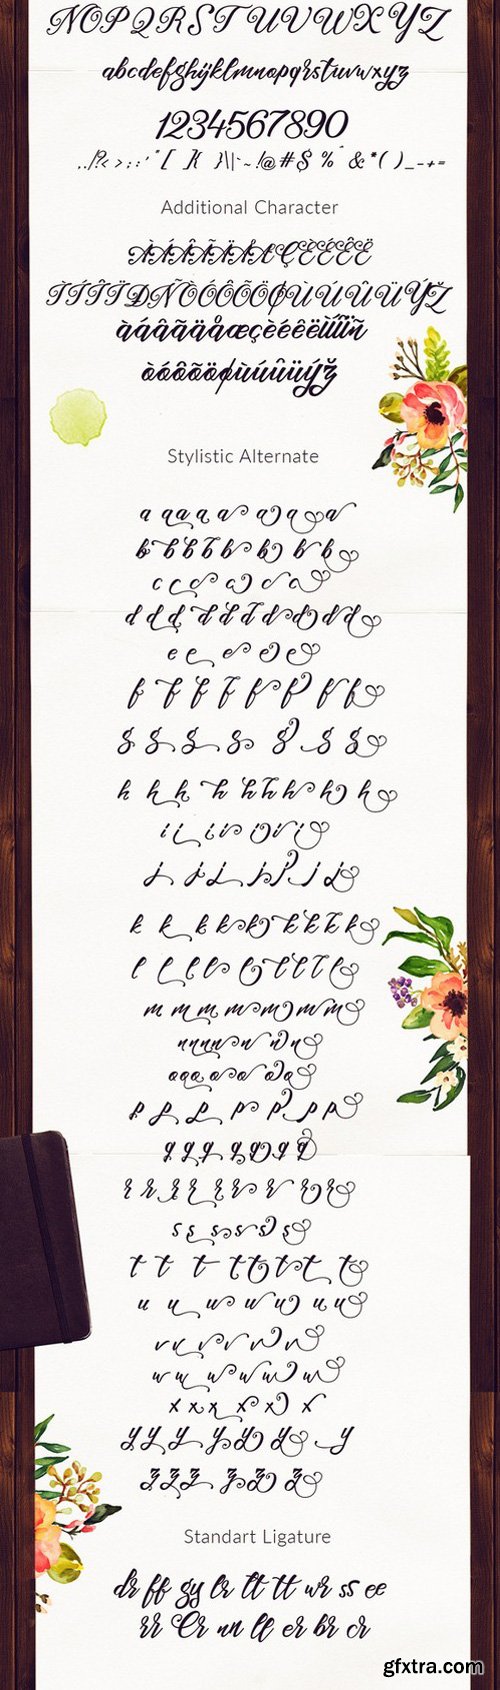 NOPQRSTUVWXYZ
abcdefghijklmnopqrstuvwxyz
1234567890
Additional Character
ÀÁÂÃÄÅÆÇÈÉÊË
ÌÍÎÏÐÑÒÓÔÕÖØÙÚÛÜÝŽ
àáâãäåæçèéêëìíîïñ
òóôõöøùúûüýž
Stylistic Alternate
a a a a a a a a a
b b b b b b b b
c c c c c c
d d d d d d d d d
e e e e e
f f f f f f f f
g g g g g g g
h h h h h h h h
i i i i i i i
j j j j j j j
k k k k k k k k k
l l l l l l l l
m m m m m m m
n n n n n n n
o o o o o o o
p p p p p p p
q q q q q q q
r r r r r r r r
s s s s s s
t t t t t t t
u u u u u u u
v v v v v v
w w w w w w
x x x x x x
y y y y y y y
z z z z z z
Standart Ligature
dr ff gy lr lt tt wr ss ee
rr Er nn ll er br cr
gfxtra.com